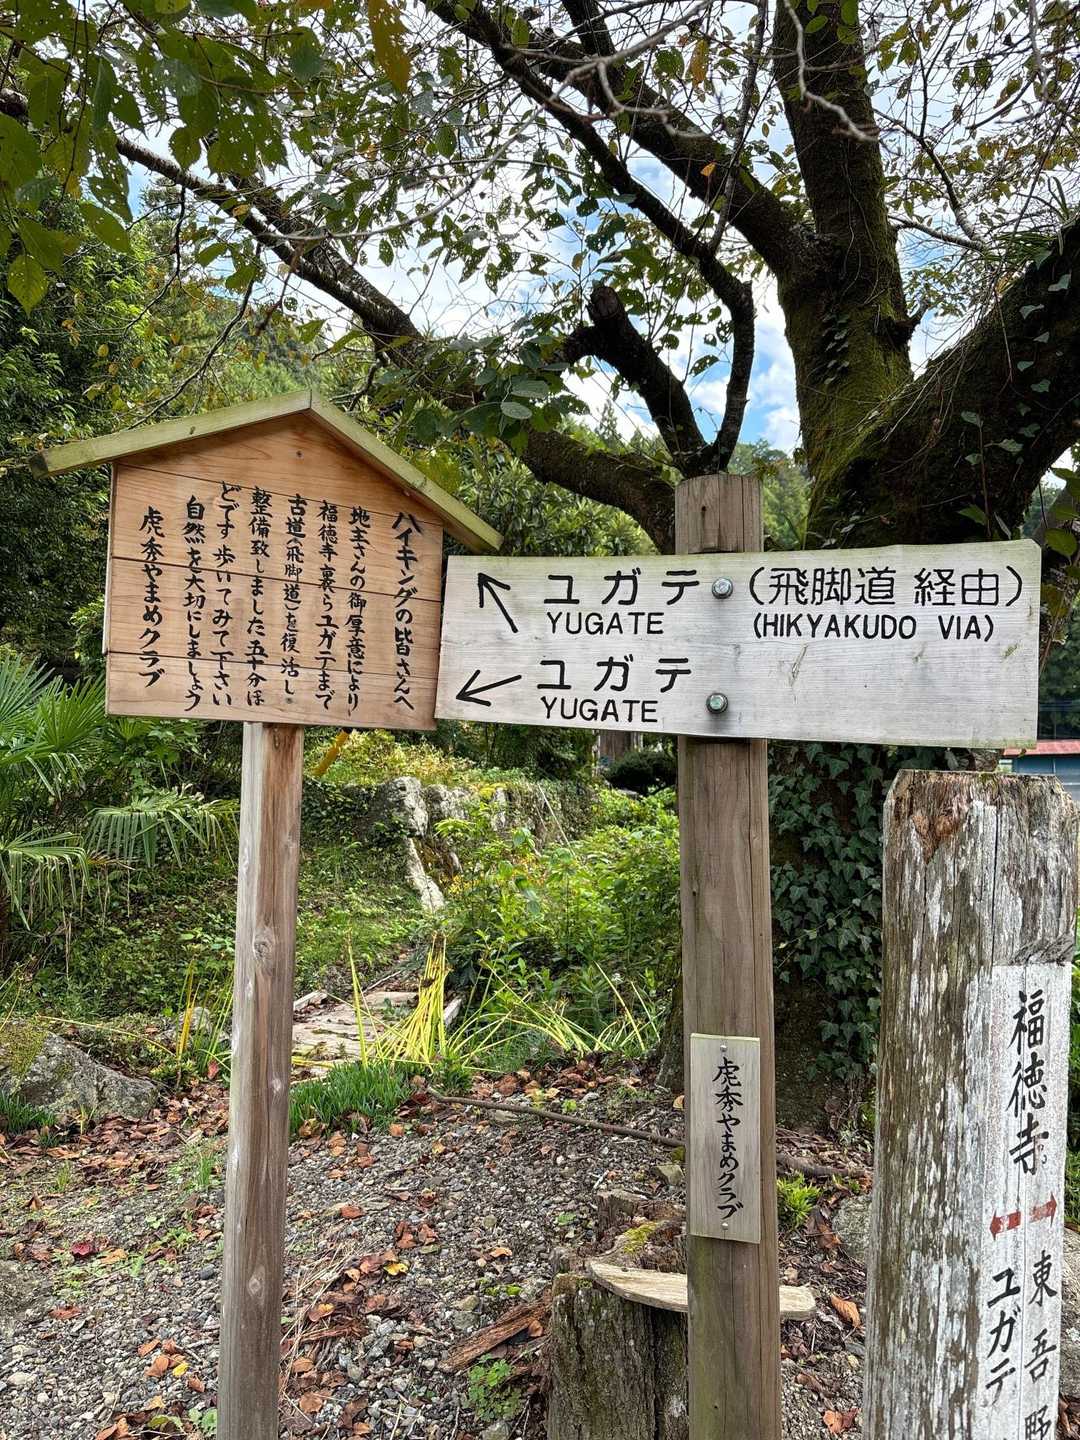 ハイキングの皆さんへ
地主さんの御厚意により
福徳寺裏らユガテまで
古道(飛脚道)を復活し
整備致しました五十分ほ
どです歩いてみて下さい
自然を大切にしましょう
虎秀やまめクラブ
ユガテ (飛脚道 経由)
YUGATE (HIKYAKUDO VIA)
ユガテ
YUGATE
虎秀やまめクラブ
福徳寺
東吾野
ユガテ